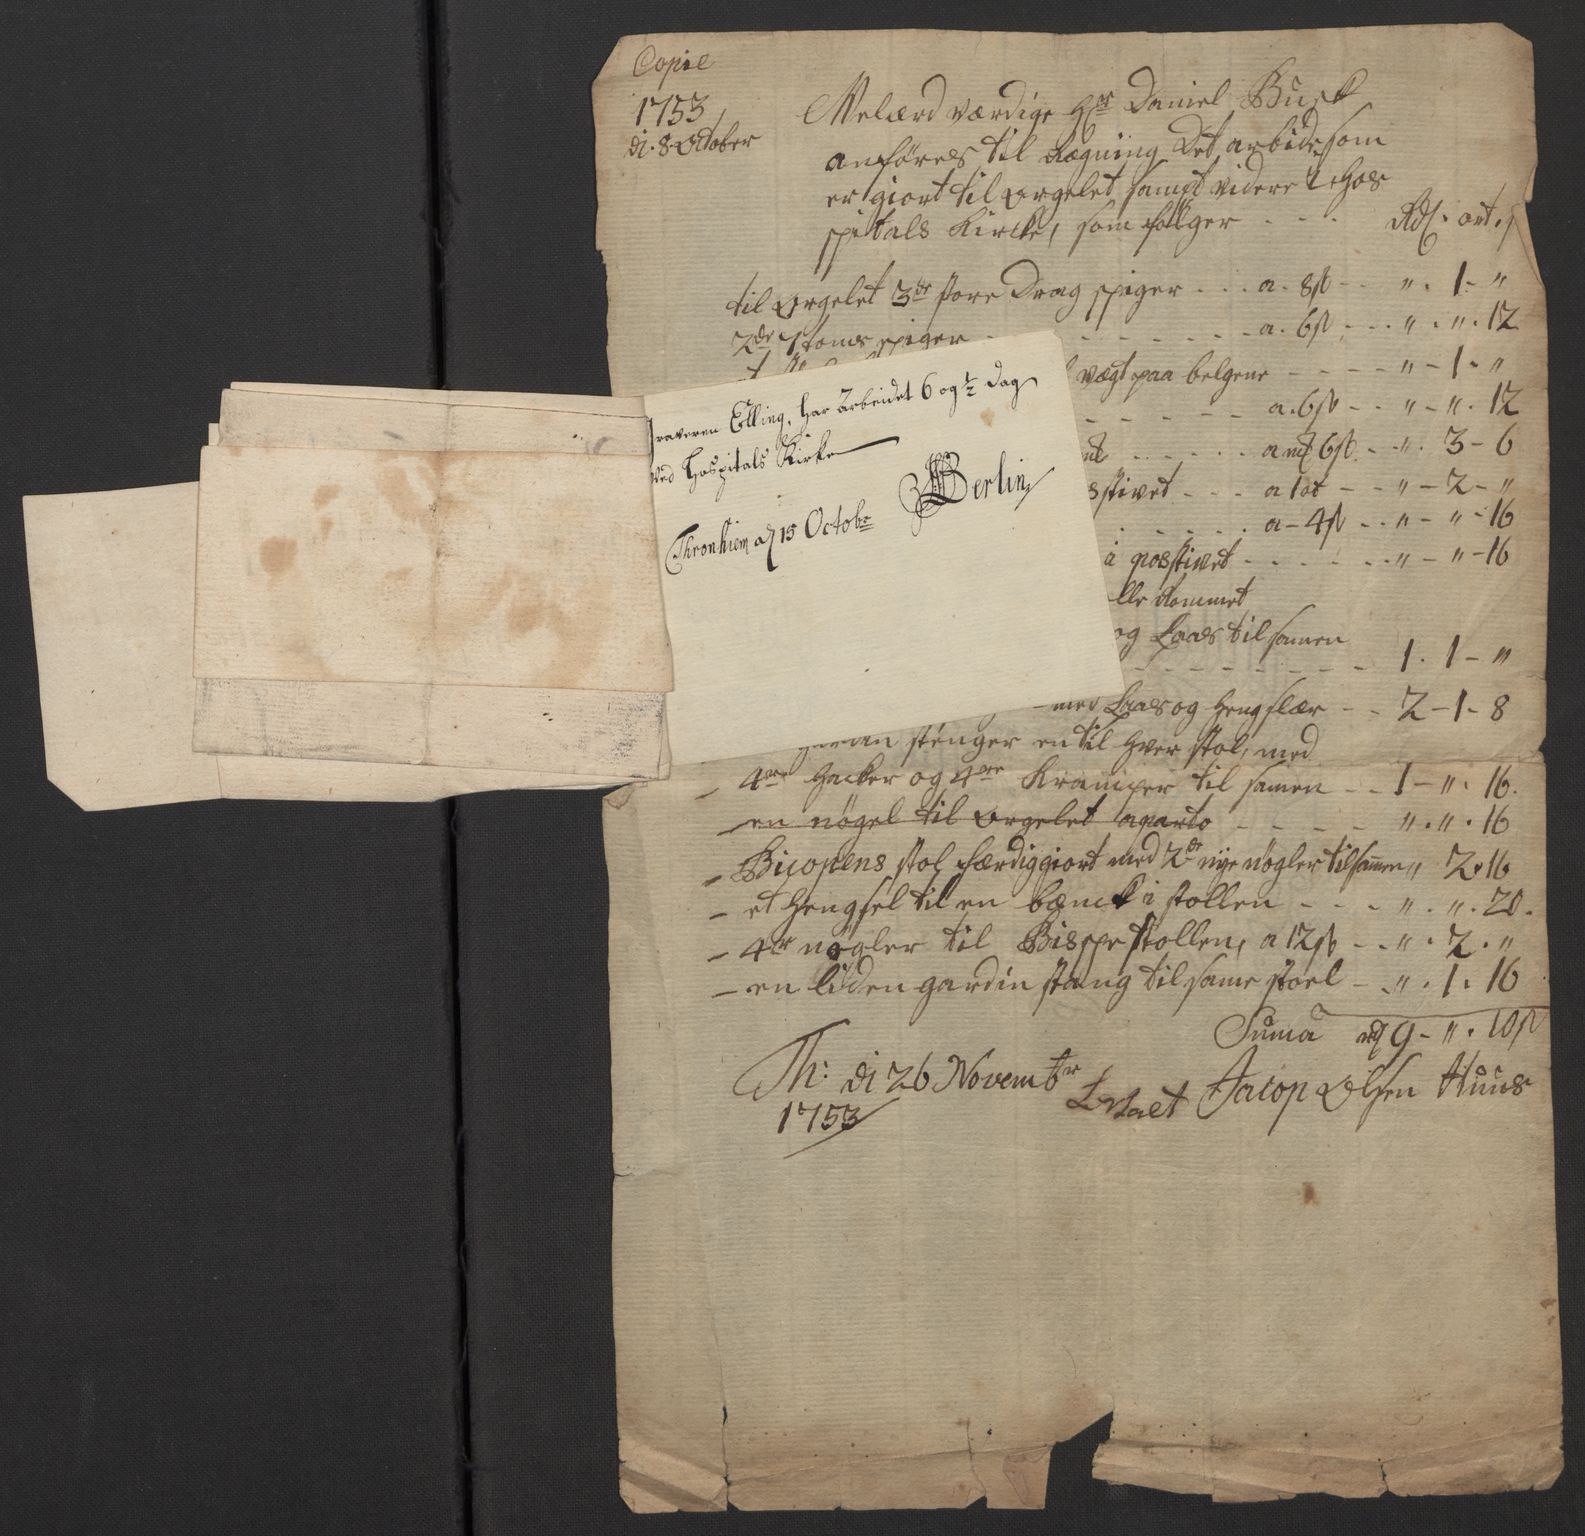 Copie
1753
di. 8 October
Velærd værdige Hr Daniel Busk
anföres til Rægning Det arbide som
er giort til orgelet samt videre i Hos
spitals Kircke, som følger - - - Rdl. ort. ß
til orgelet 3de store Drag spiger - - - a. 8ß - - " . 1 - "
2de spiger - - - a. 6ß - - - " . " . 12
vægt paa belgene - - - - " - 1 - "
a. 6ß - - " - " . 12
a 6ß - - " . 3 - 6
sstivet - - - a 1 ort - - " - 2 - "
a - 4ß - - " - " - 16
i posstivet - - - - - - " - " - 16
og Laas til samen
1 . 1 - "
med Laas og hengslær - - 2 - 1 - 8
stenger en til hver stol, med
- 4re Hacker og 4re Kramper til samen - - 1 - " . 16.
- en nögel til orgelet aparto - - - - " . " . 16
- Bicopens stol færdiggiort med 2de nye nögler tilsammen " 2 . 16
- et Hengsel til en bænck i stollen - - - " . " . 20.
- 4re nögler til Bispe stollen, a 12ß - - " . 2 . "
- en liden gardin stang til same stoel - - " . 1 . 16
Suma rd 9 - " . 10ß
Th: di 26 Novembr
1753
Jacop Olsen Huus
raveren Elling, har arbeidet 6 og ½ Dag
ved Hospitals Kirke
Thronhiem d 15 Octobr
Berlin